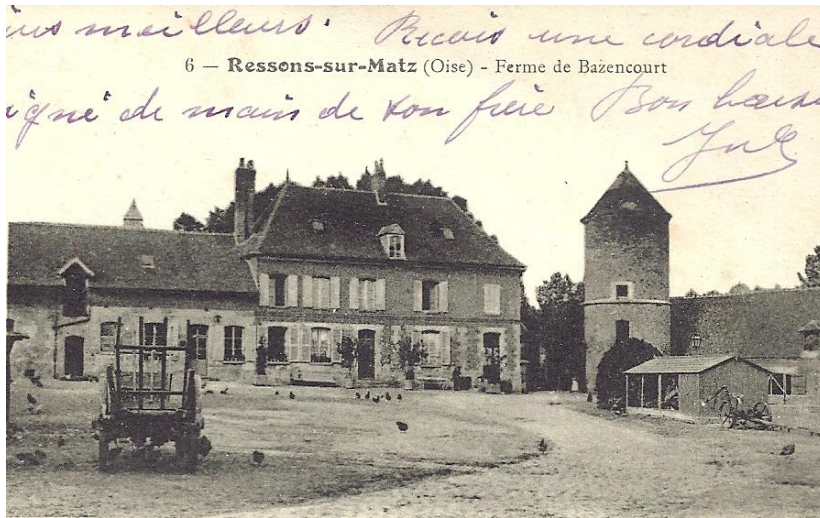 meilleurs. Recois une cordiale
6 — Ressons-sur-Matz (Oise) - Ferme de Bazencourt
poigné de main de ton frère Bon baiser